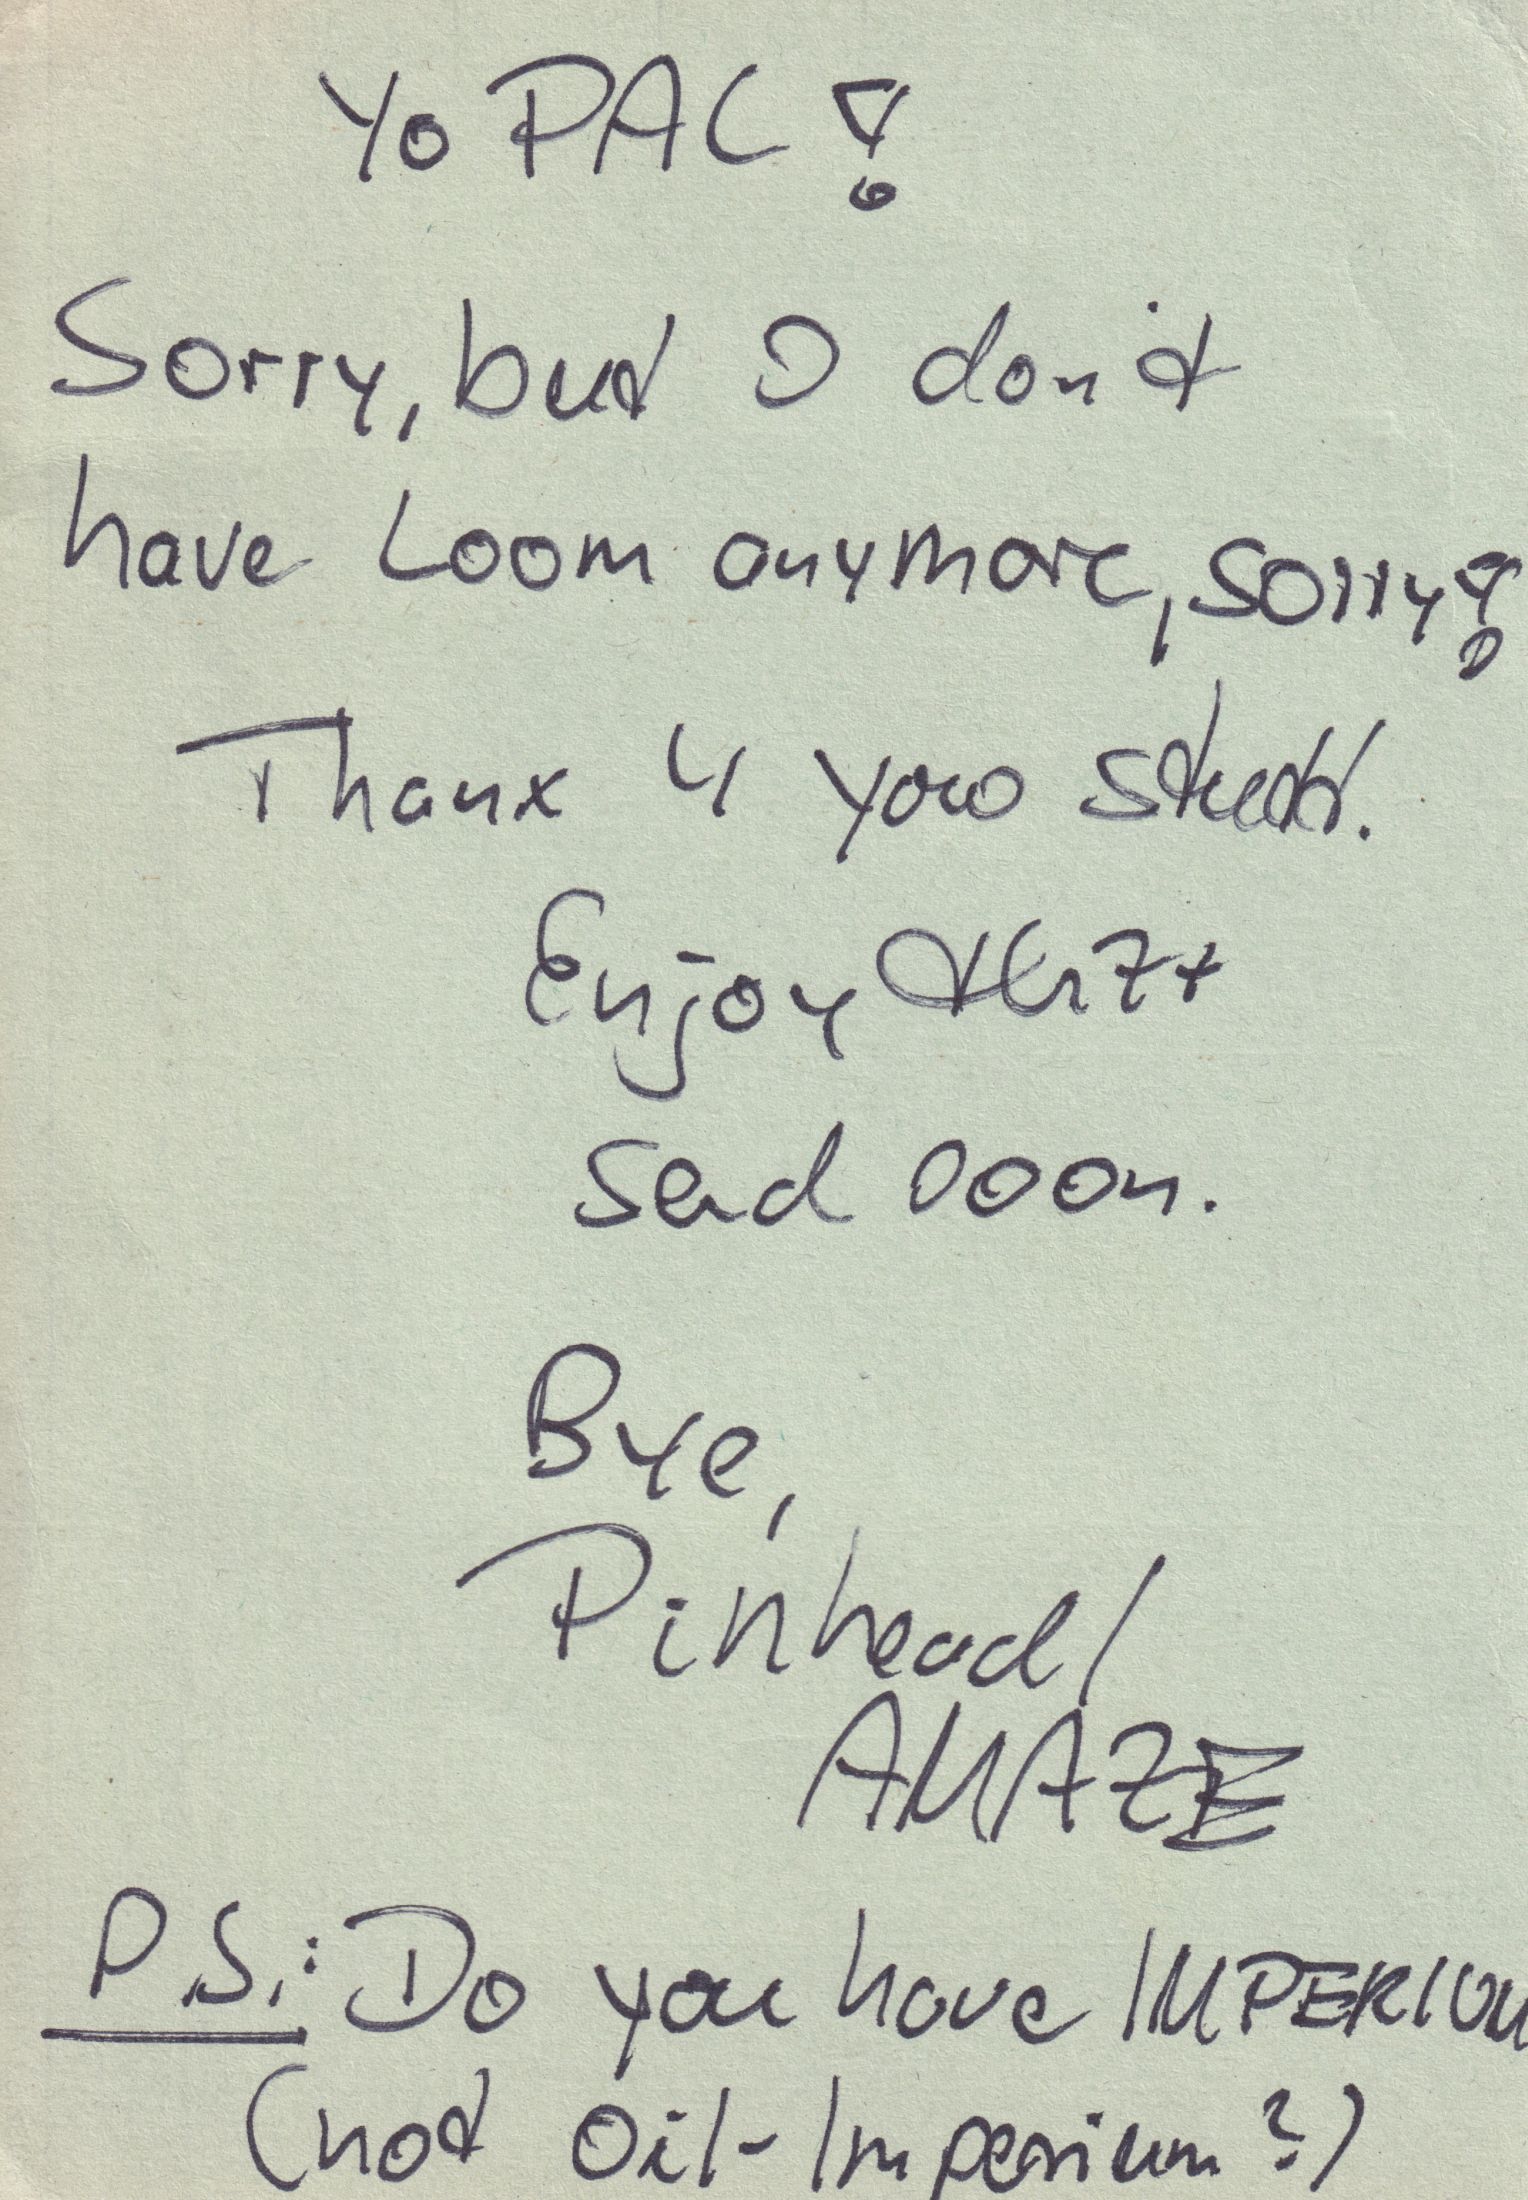 Yo PAC!
Sorry, but I don't
have Loom anymore, sorry!
Thanx 4 your stuff.
Enjoy +
send soon.
Bye,
Pinhead/
AMAZE
P.S.: Do you have IMPERIUM
(not Oil-Imperium?)